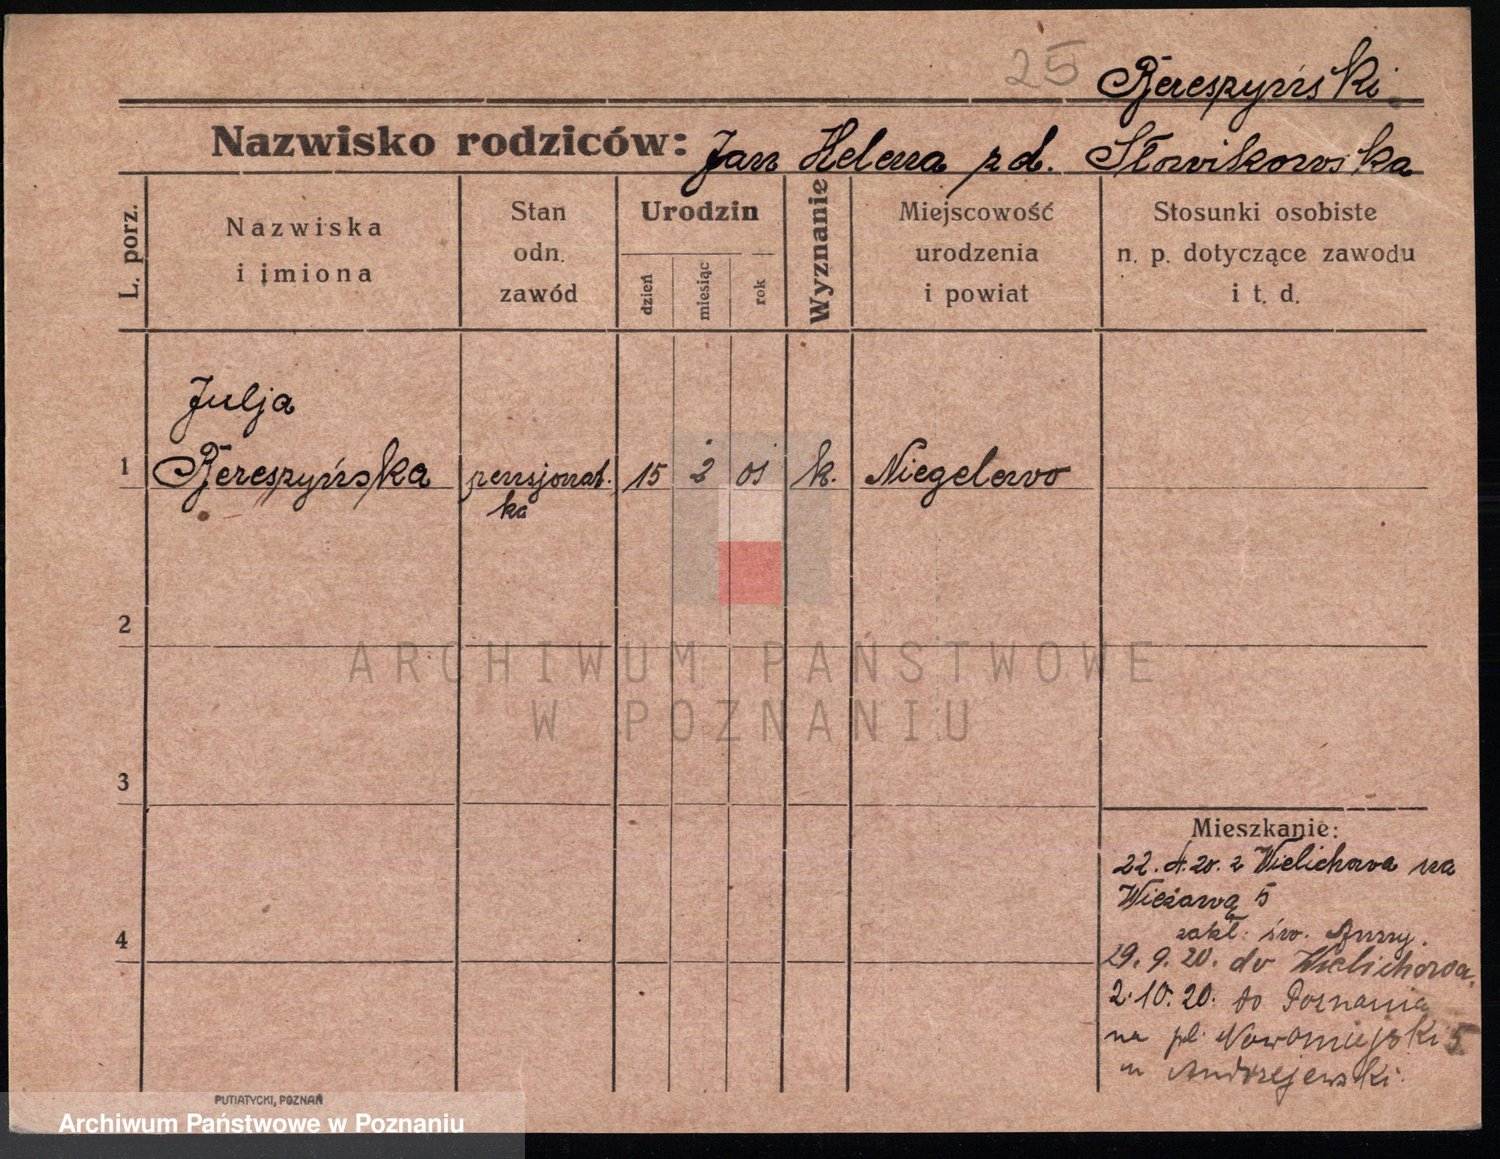 25 Bereszyński
Nazwisko rodziców: Jan Helena z d. Słowikowska
L. porz.
Nazwiska
i imiona
Stan
odn.
zawód
Urodzin
dzień
miesiąc
rok
Wyznanie
Miejscowość
urodzenia
i powiat
Stosunki osobiste
n. p. dotyczące zawodu
i t. d.
Julja
1 Bereszyńska pensjonat. 15 2 05 k. Niegolewo
ka
2
ARCHIWUM PAŃSTWOWE
W POZNANIU
3
Mieszkanie:
22.4.20. z Wielichowa na
Wieżową 5
zakł. św. Anny.
4
29.9.20. do Wielichowa,
2.10.20. do Poznania
na pl. Nowomiejski 5.
u Andrzejewski.
PUTIATYCKI, POZNAŃ
Archiwum Państwowe w Poznaniu